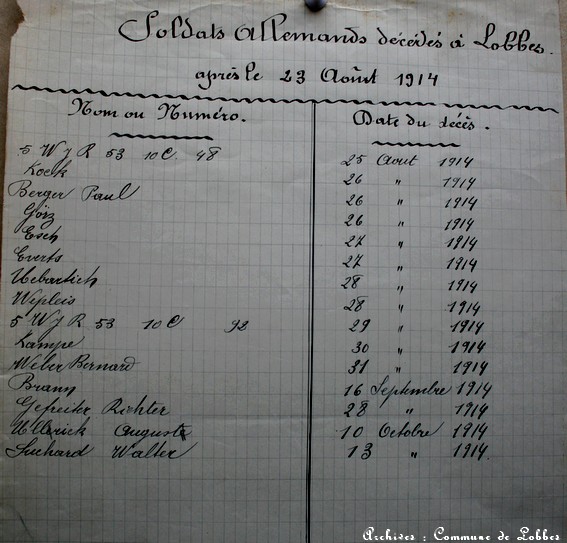 Soldats Allemands décédés à Lobbes.
après le 23 Août 1914
Nom ou Numéro. Date du décès.
5 W J R 53 10 C. 48 25 Aout 1914
Kock 26 " 1914
Berger Paul 26 " 1914
Görz 26 " 1914
Esch 27 " 1914
Everts 27 " 1914
28 " 1914
Wipleis 28 " 1914
5 W J R 53 10 C 92 29 " 1914
Kampe 30 " 1914
Weber Bernard 31 " 1914
Brann 16 Septembre 1914
Gefreiter Richter 28 " 1914
August 10 Octobre 1914
Suchard Walter 13 " 1914.
Archives : Commune de Lobbes